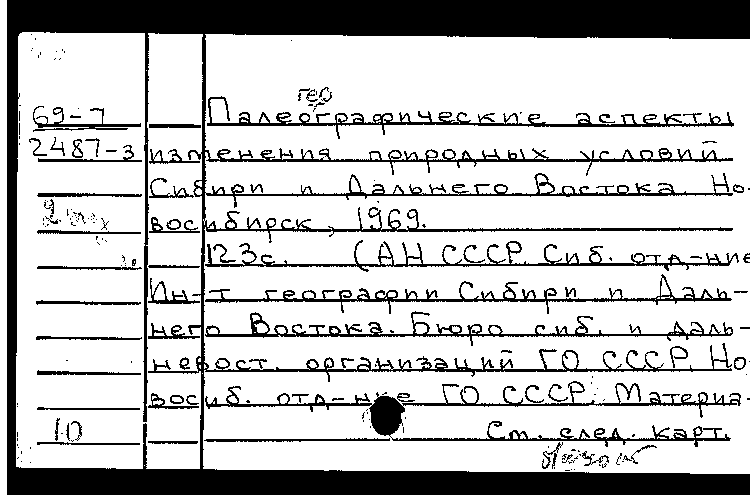 гео
69-7 Палеографические аспекты
2487-3 изменения природных условий
Сибири и Дальнего Востока. Но-
восибирск, 1969.
123с. (АН СССР. Сиб. отд-ние
Ин-т географии Сибири и Даль-
него Востока. Бюро сиб. и даль-
невост. организаций ГО СССР. Но
восиб. отд-ние ГО СССР. Материа-
10 См. след. карт.